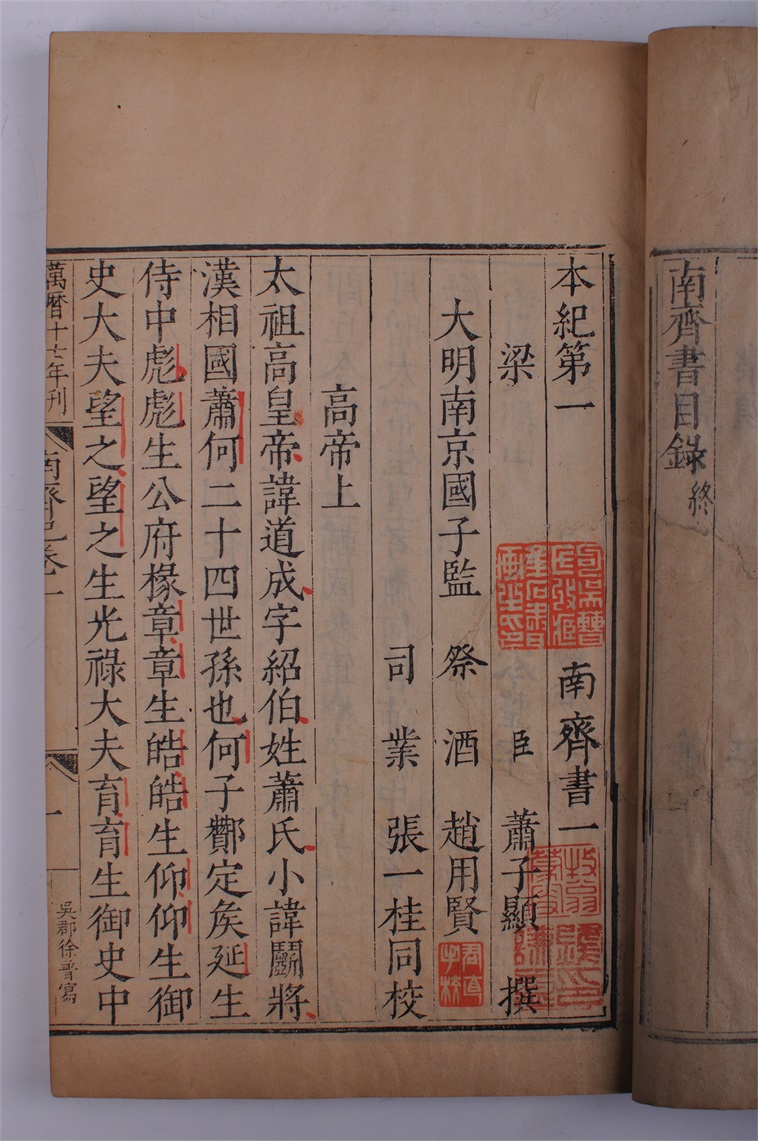 南齊書目錄終
本紀第一 南齊書一
梁 臣 蕭子顯 撰
大明南京國子監 祭酒 趙用賢
司業 張一桂同校
高帝上
太祖高皇帝諱道成字紹伯姓蕭氏小諱鬬將
漢相國蕭何二十四世孫也何子酇定矦延生
侍中彪彪生公府椽章章生皓皓生仰仰生御
史大夫望之望之生光祿大夫育育生御史中
萬曆十七年刊 南齊紀卷一 一 吳郡徐普寫